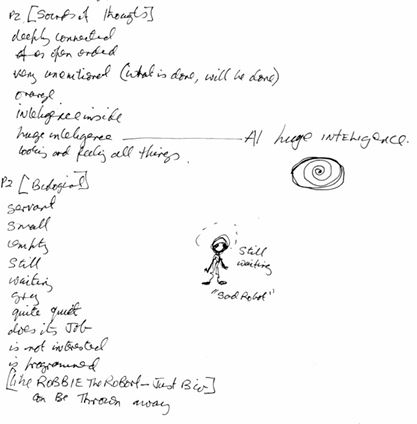 P2 [Sounds of thoughts]
deeply connected
as open ended
very unemotional (what is done, will be done)
orange
inteligence inside
huge inteligence AI huge INTELIGENCE.
looking and feeling all things.
P2 [Biological]
servant
small
empty
still
waiting
grey
quite quiet
does its JOB
is not interested
is programmed
[like ROBBIE The ROBOT - Just Bio]
can Be Thrown away
Still waiting
"Sad Robot"